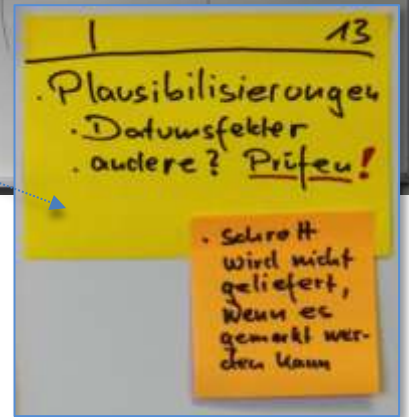 I 13
. Plausibilisierungen
. Datumsfelder
. andere? Prüfen!
. Schrott
wird nicht
geliefert,
wenn es
gemerkt wer-
den kann